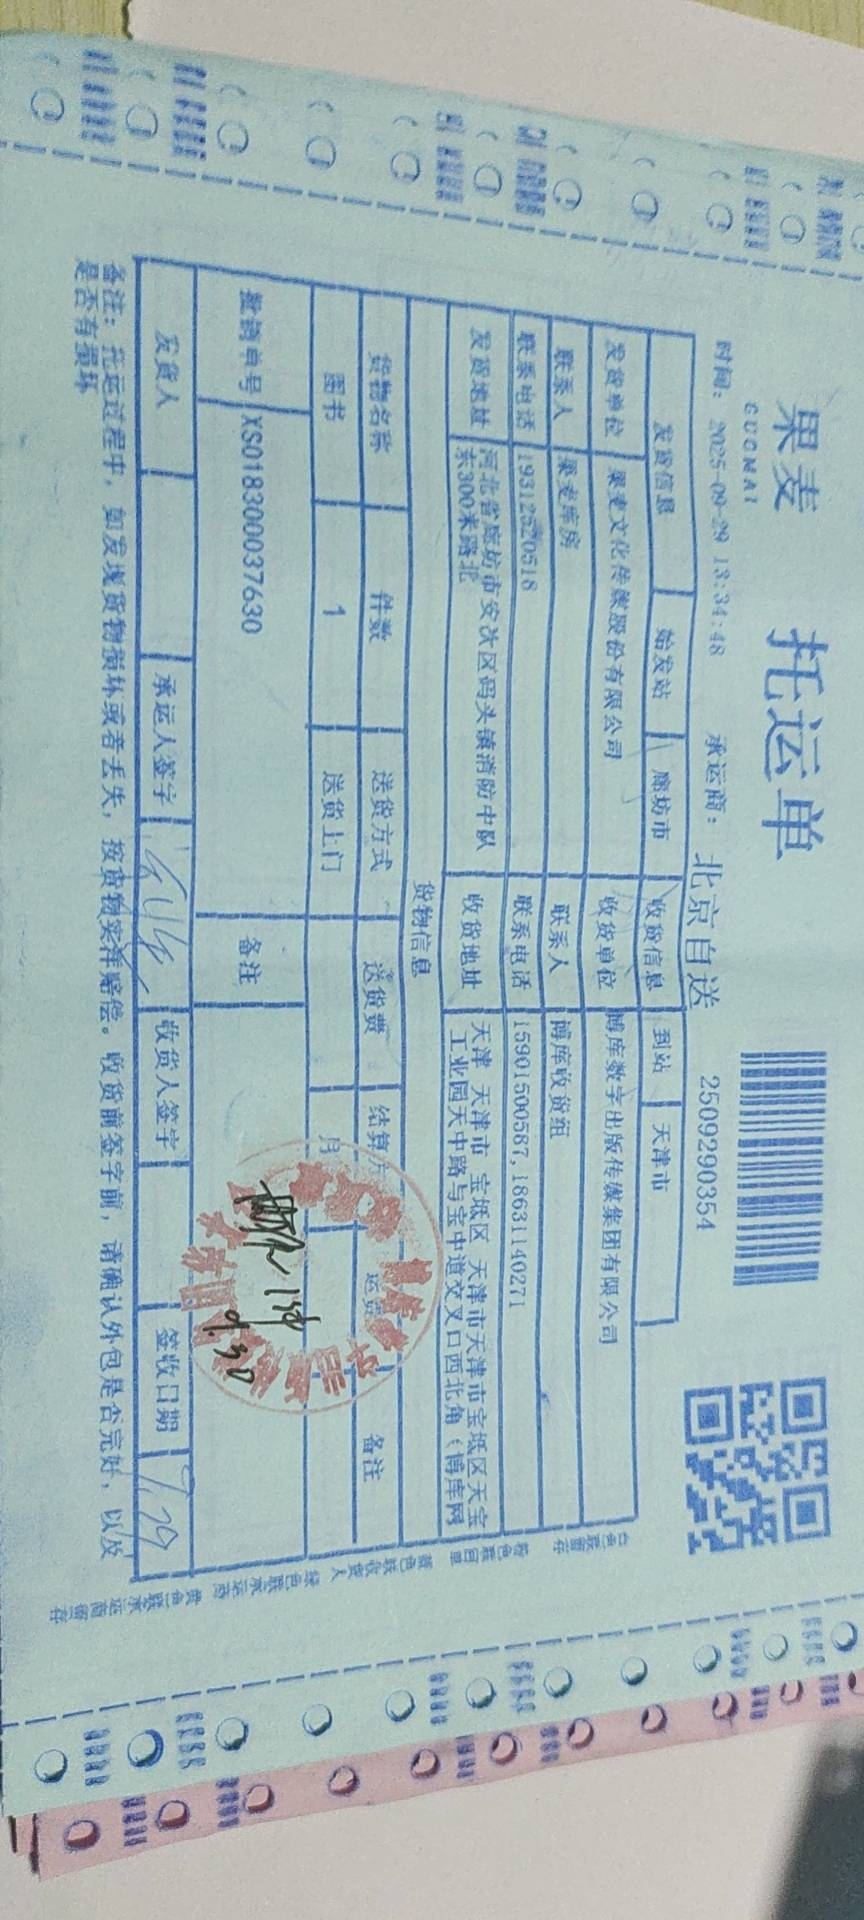 果麦
GUOMAI
托运单
2509290354
时间: 2025-09-29 13:34:48 承运商: 北京自送
发货信息 始发站 廊坊市 收货信息 到站 天津市
发货单位 果麦文化传媒股份有限公司 收货单位 博库数字出版传媒集团有限公司
联系人 果麦库房 联系人 博库收货组
联系电话 19312520518 联系电话 15901500587,18631140271
发货地址 河北省廊坊市安次区码头镇消防中队东300米路北 收货地址 天津 天津市 宝坻区 天津市天津市宝坻区天宝工业园天中路与宝中道交叉口西北角（博库网
货物信息
货物名称 件数 送货方式 送货费 结算方 运费 备注
图书 1 送货上门 月
批销单号 XS018300037630 备注
1件
9.30
发货人 承运人签字 收货人签字 签收日期 9/29
备注: 托运过程中, 如发现货物损坏或者丢失, 按货物实洋赔偿。收货前签字前, 请确认外包是否完好, 以及
是否有损坏
白色联留存 粉色联回单 蓝色联收货人 绿色联承运商 黄色联承运商留存